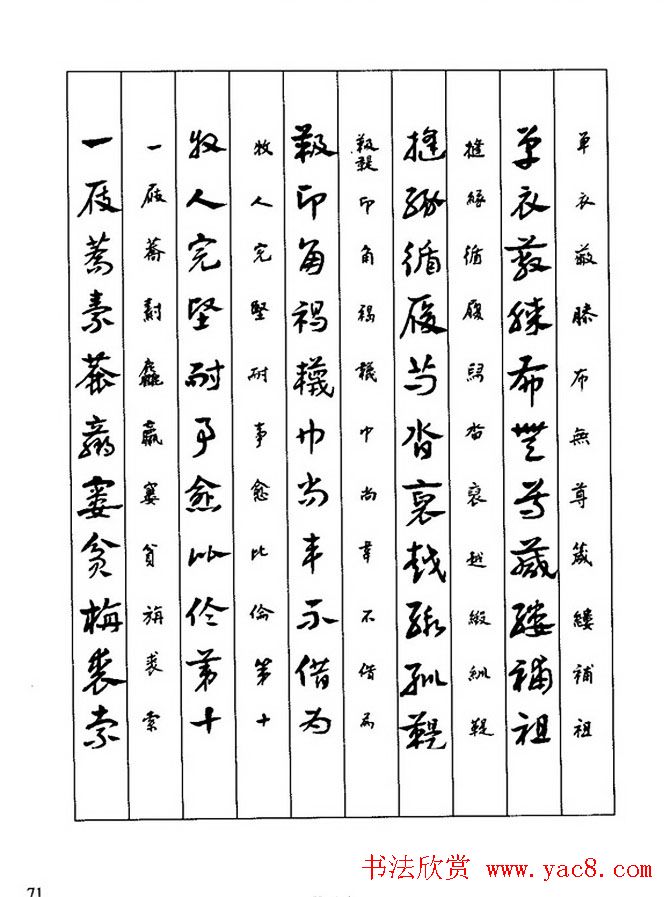 单衣蔽膝布無尊箴縷補祖
单衣蔽膝布無尊箴縷補祖
縫緣循履舄沓裒越緞紃鞮
縫緣循履舄沓裒越緞紃鞮
靸鞮印角褐韤巾尚韋不借為
靸印角褐韤巾尚韋不借为
牧人完堅耐事愈比倫第十
牧人完堅耐事愈比倫第十
一屐麤羸窶貧旃裘索
一屐麤羸窶貧旃裘索
书法欣赏 www.yac8.com
71